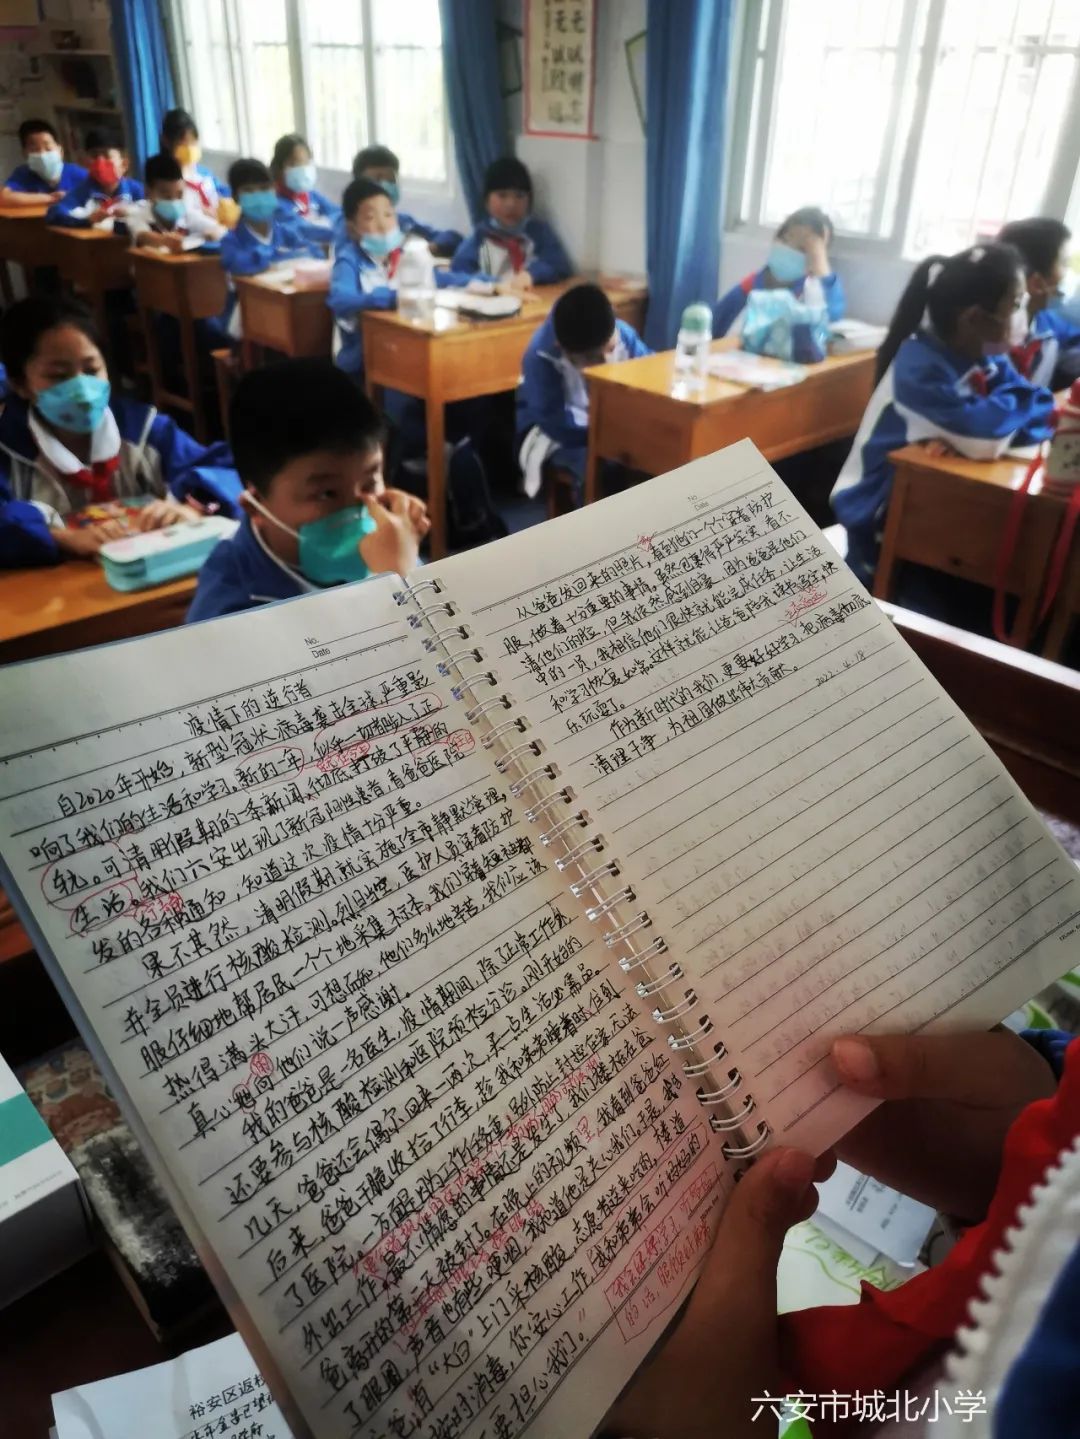 疫情下的逆行者
自2020年开始，新型冠状病毒袭击全球，严重影
响了我们的生活和学习。新的一年，似乎一切都步入了正
轨。可清明假期的一条新闻，彻底打破了平静的
生活。我们六安出现了新冠阳性患者，看爸爸医院
发的各种通知，知道这次疫情十分严重。
果不其然，清明假期就实施了全市静默管理，
并全员进行核酸检测。烈日当空，医护人员穿着防护
服仔细地帮居民一个个地采集标本。我们穿着短袖都
热得满头大汗，可想而知，他们多么地辛苦，我们应该
真心的向他们说一声感谢。
我的爸爸是一名医生，疫情期间，除了正常工作外
还要参与核酸检测和医院预检分诊。刚开始的
几天，爸爸还会偶尔回来一两次，买一点生活必需品。
后来，爸爸干脆收拾了行李，趁我和弟弟睡着时，住到
了医院。一方面是他的工作任务重，另外防止封控在家，无法
外出工作。最不情愿的事情还是发生了，我们楼栋在爸
爸离开的第二天被封了。在晚上的视频里，我看到爸爸红
了眼圈，声音也有些哽咽，我知道他是关心我们。于是，我告
有“大白”上门采核酸，志愿者送来吃的，楼道
按时消毒，你安心工作，我和弟弟会听妈妈的
要担心我们。”
从爸爸发回来的照片，看到他们一个个穿着防护
服，做着十分重要的事情。虽然包裹得严严实实，看不
清他们的脸，但我依然感到自豪，因为爸爸是他们
中的一员，我相信他们很快就能完成任务，让生活
和学习恢复如常。这样就能让爸爸陪我读书写字，快
乐玩耍了。
作为新时代的我们，更要好好学习，把病毒彻底
清理干净，为祖国做出伟大贡献。
2022.4.18
No.
Date
No.
Date
裕安区返校
六安市城北小学